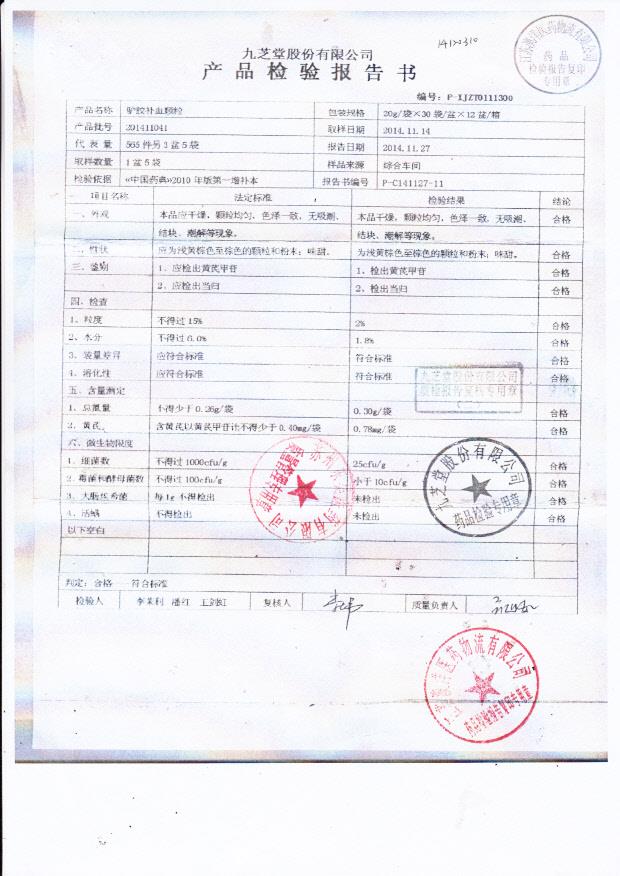 九芝堂股份有限公司
产品检验报告书
编号：P-XJZT0111300
产品名称 驴胶补血颗粒 包装规格 20g/袋×30袋/盆×12盆/箱
产品批号 201411041 取样日期 2014.11.14
代表量 565件另3盆5袋 报告日期 2014.11.27
取样数量 1盆5袋 样品来源 综合车间
检验依据 《中国药典》2010年版第一增补本 报告书编号 P-C141127-11
项目名称 法定标准 检验结果 结论
一、外观 本品应干燥，颗粒均匀、色泽一致，无吸潮、 本品干燥，颗粒均匀、色泽一致，无吸潮、 合格
结块、潮解等现象。 结块、潮解等现象。
二、性状 应为浅黄棕色至棕色的颗粒和粉末；味甜。 为浅黄棕色至棕色的颗粒和粉末；味甜。 合格
三、鉴别 1、应检出黄芪甲苷 1、检出黄芪甲苷 合格
2、应检出当归 2、检出当归 合格
四、检查
1、粒度 不得过15% 2% 合格
2、水分 不得过6.0% 1.8% 合格
3、装量差异 应符合标准 符合标准 合格
4、溶化性 应符合标准 符合标准
九芝堂股份有限公司
质检报告复核专用章
五、含量测定
1、总氮量 不得少于0.26g/袋 0.30g/袋 合格
2、黄芪 含黄芪以黄芪甲苷计不得少于0.40mg/袋 0.78mg/袋 合格
六、微生物限度
1、细菌数 不得过1000cfu/g 25cfu/g 合格
2、霉菌和酵母菌数 不得过100cfu/g 小于10cfu/g 合格
3、大肠埃希菌 每1g不得检出 未检出 合格
4、活螨 不得检出 未检出 合格
九芝堂股份有限公司
药品检验专用章
以下空白
判定：合格 符合标准
检验人 李茉利 潘红 王剑虹 复核人 质量负责人
药品
检验报告复印
专用章